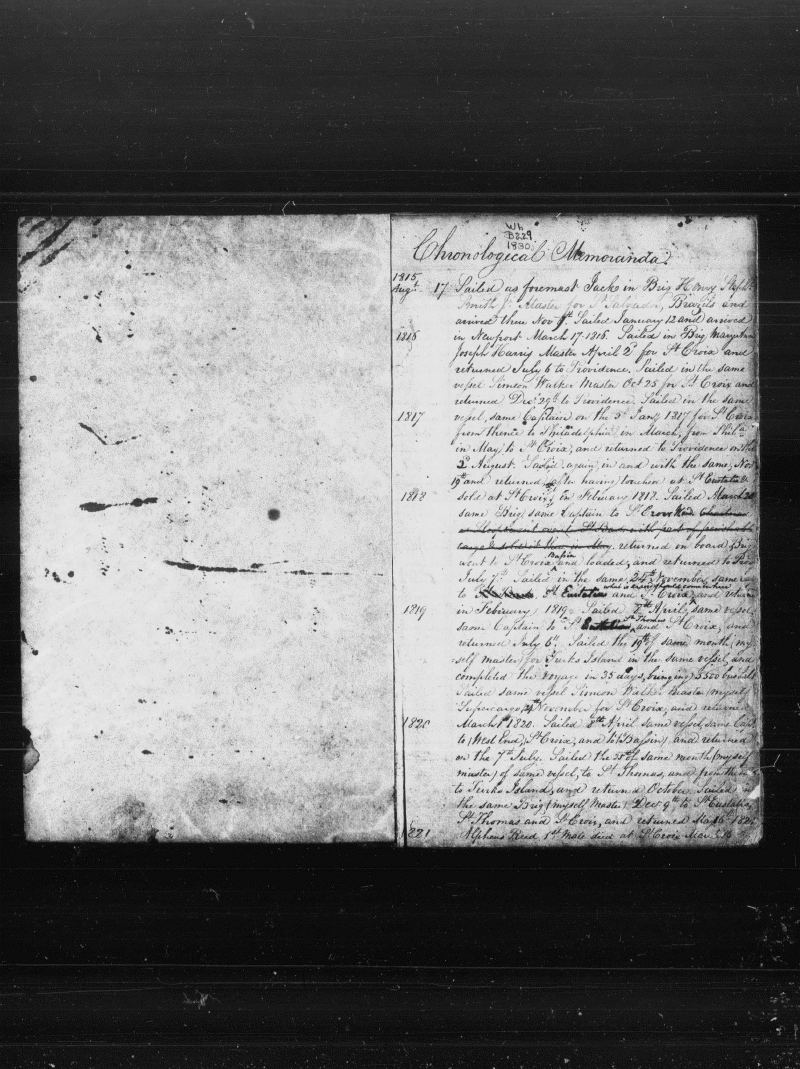 Wh.
B229
1830
Chronological Memoranda.
1815
Augt. 17 Sailed as foremast Jack in Brig Henry
Smith Jr. Master for St. Salvador, Brazils and
arrived there Nov Sailed January 12 and arrived
1816 in Newport March 17-1816. Sailed in Brig Mary Ann
Joseph Harris Master April 2d for St Croix and
returned July 6 to Providence. Sailed in the same
vessel Simeon Master Oct 25 for St Croix and
returned Decr 29th to Providence. Sailed in the same
1817 vessel, same Captain on the 3d Jany 1817 for St Croix
from thence to Philadelphia in March, from Phila
in May, to St Croix, and returned to Providence on the
2d August. Sailed again, in and with the same, Nov
19th and returned, after having touched at St Eustatia &
1818 sold at St Croix, in February 1818. Sailed March 20
same Brig, same Captain to St Croix
St Barts with part of
cargo & sold it there in May. returned on board Brig
Bassin
went to St Croix and loaded, and returned to Prov
July 7th. Sailed in the same, 24th November, same
what is erased should come in here
to St Eustatius and St Croix, and return
1819 in February 1819. Sailed 8th April, same vessel
St Thomas
same Captain to St and St Croix, and
returned July 6th. Sailed the 19th of same month (my
self master) for Turks Island in the same vessel, and
completed the voyage in 35 days, bringing 3500 bushels
Sailed same vessel Simeon master (myself
Supercargo) 24th November for St Croix, and returned
1820 March 1st 1820. Sailed 8th April same vessel, same Capt
to (West End) St Croix, and to (Bassin) and returned
on the 7th July. Sailed the 25th of same month (myself
master) of same vessel, to St Thomas, and from thence
to Turks Island, and returned October. Sailed in
the same Brig (myself Master) Decr 9th to St Eustatia,
St Thomas and St Croix, and returned Ma 16th 1821
1821 Alpheus Reed 1st mate died at St Croix Mar